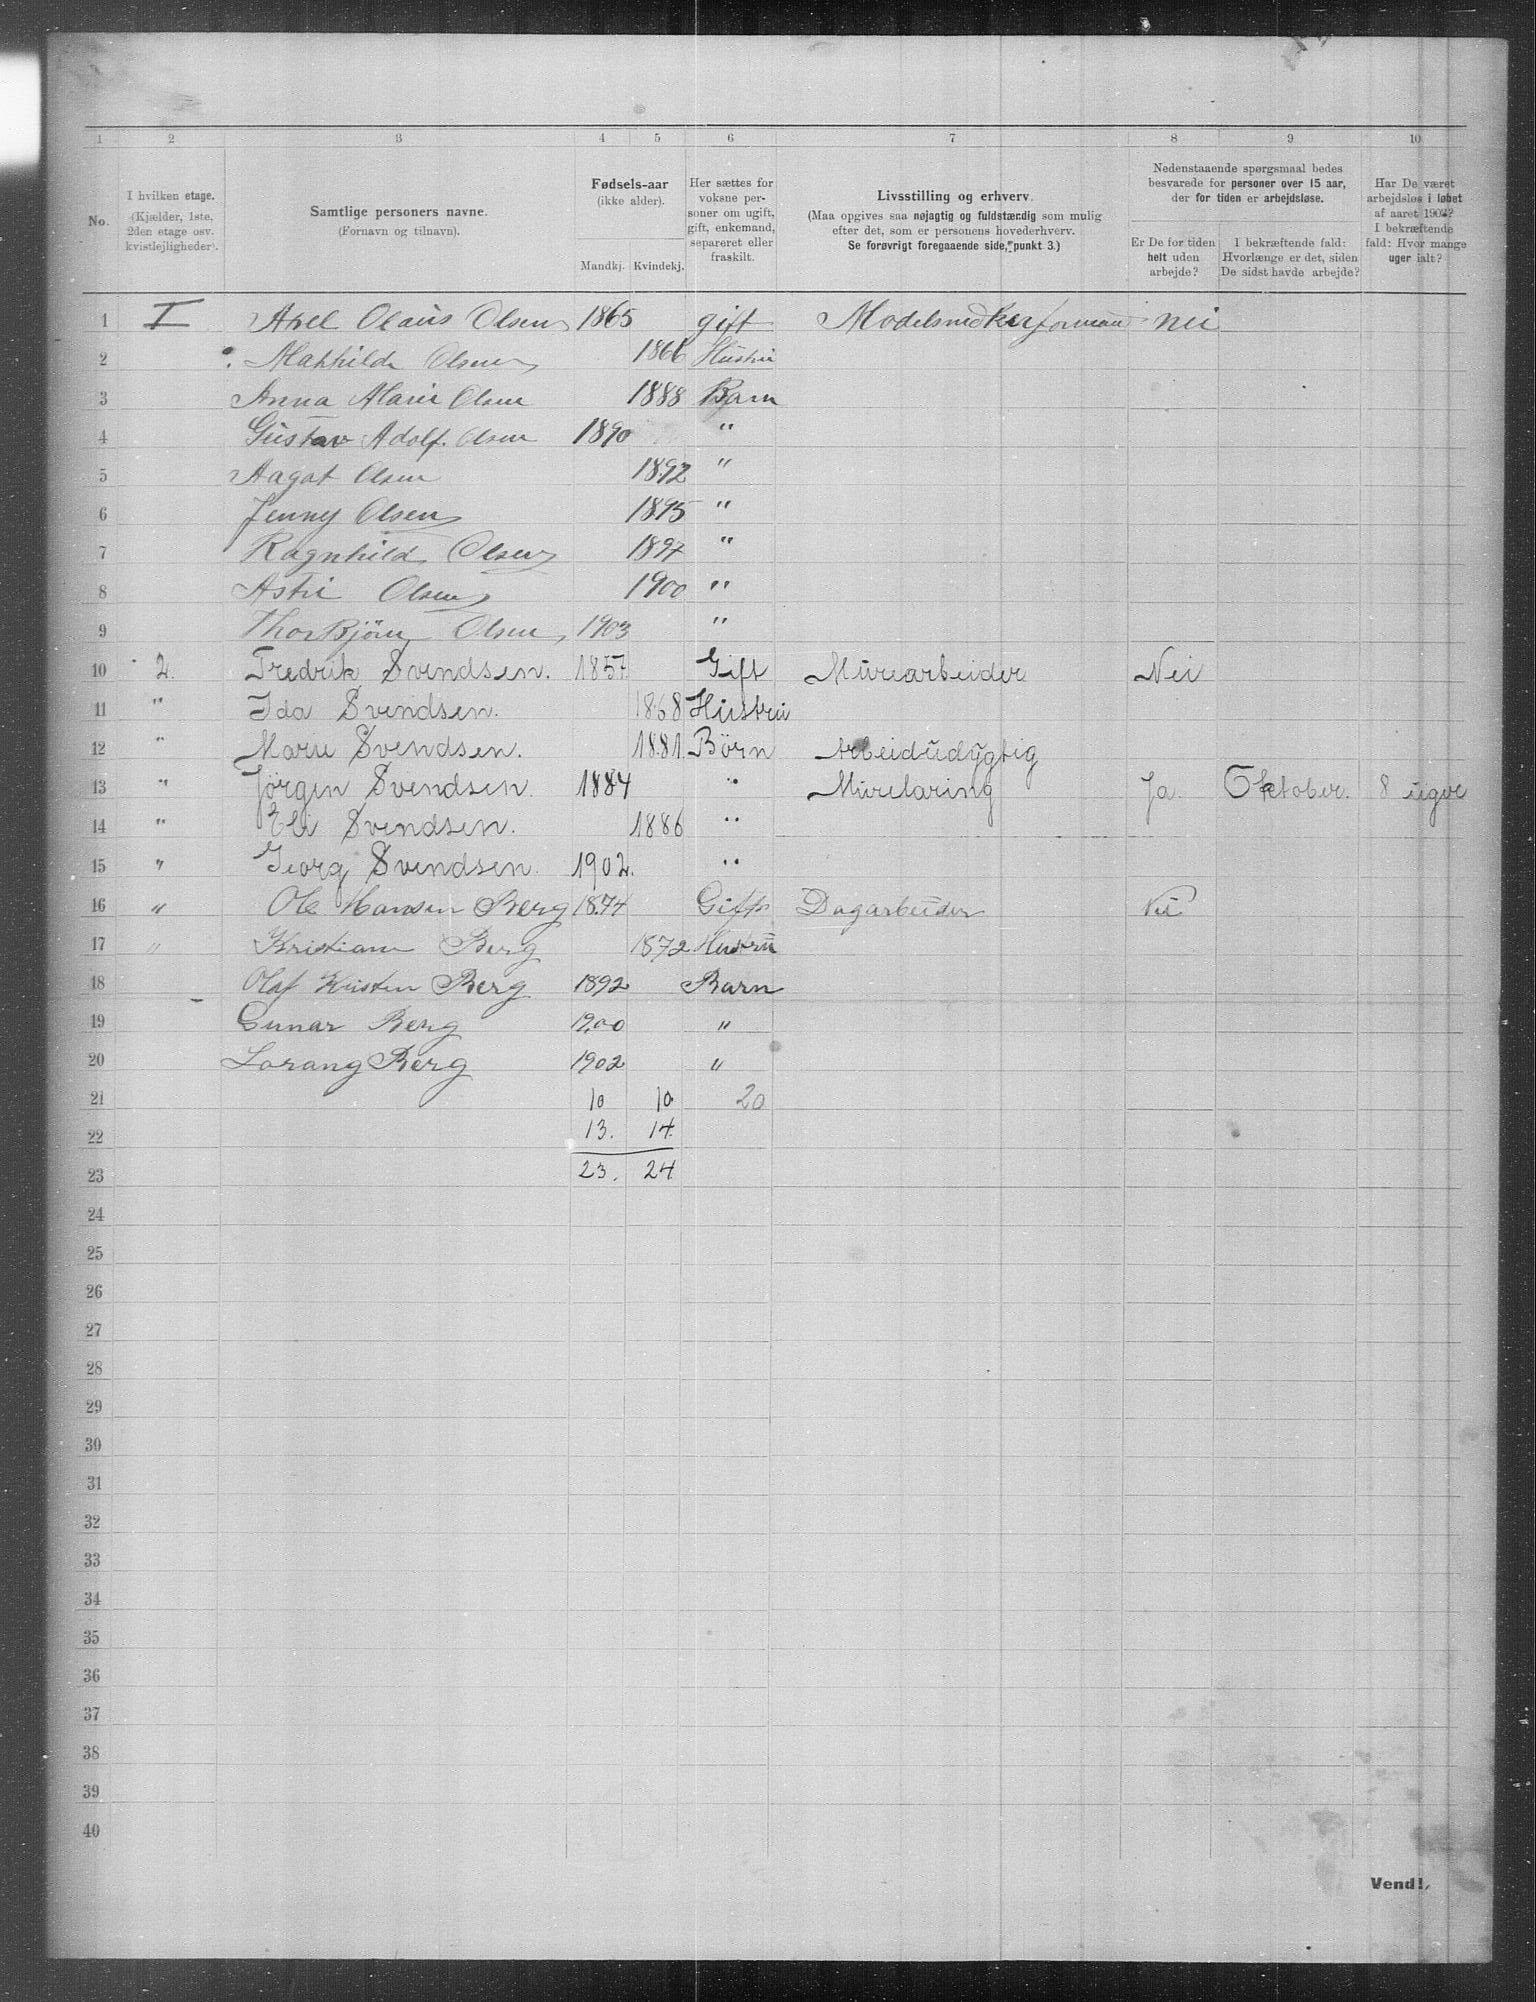 1 2 3 4 5 6 7 8 9 10
No.
I hvilken etage. (Kjælder, 1ste, 2den etage osv. kvistlejligheder).
Samtlige personers navne. (Fornavn og tilnavn).
Fødsels-aar (ikke alder). Mandkj. Kvindekj.
Her sættes for voksne personer om ugift, gift, enkemand, separeret eller fraskilt.
Livsstilling og erhverv. (Maa opgives saa nøjagtig og fuldstændig som mulig efter det, som er personens hovederhverv. Se forøvrigt foregaaende side, punkt 3.)
Nedenstaaende spørgsmaal bedes besvarede for personer over 15 aar, der for tiden er arbejdsløse.
Er De for tiden helt uden arbejde?
I bekræftende fald: Hvorlænge er det, siden De sidst havde arbejde?
Har De været arbejdsløs i løbet af aaret 1903? I bekræftende fald: Hvor mange uger ialt?
1 I Axel Olaus Olsen 1865 gift Modelsnedkerformand nei
2 Mathilde Olsen 1866 Hustru
3 Anna Marie Olsen 1888 Barn
4 Gustav Adolf. Olsen 1890 "
5 Aagot Olsen 1892 "
6 Jenny Olsen 1895 "
7 Ragnhild Olsen 1897 "
8 Astri Olsen 1900 "
9 Thor Bjørn Olsen 1903 "
10 2. Fredrik Svendsen. 1857. Gift Murearbeider Nei
11 " Ida Svendsen. 1868 Hustru
12 " Marie Svendsen. 1881. Børn Arbeidudygtig
13 " Jörgen Svendsen. 1884 " Murelæring Ja. Oktober. 8 uger
14 " Eli Svendsen. 1886 "
15 " Georg Svendsen. 1902. "
16 " Ole Hansen Berg 1874 Gift Dagarbeider Nei
17 " Kristiane Berg 1872 Hustru
18 Olaf Kristen Berg 1892 Barn
19 Gunar Berg 1900 "
20 Lorang Berg 1902 "
21 10 10 20
22 13. 14.
23 23. 24
24
25
26
27
28
29
30
31
32
33
34
35
36
37
38
39
40
Vend!